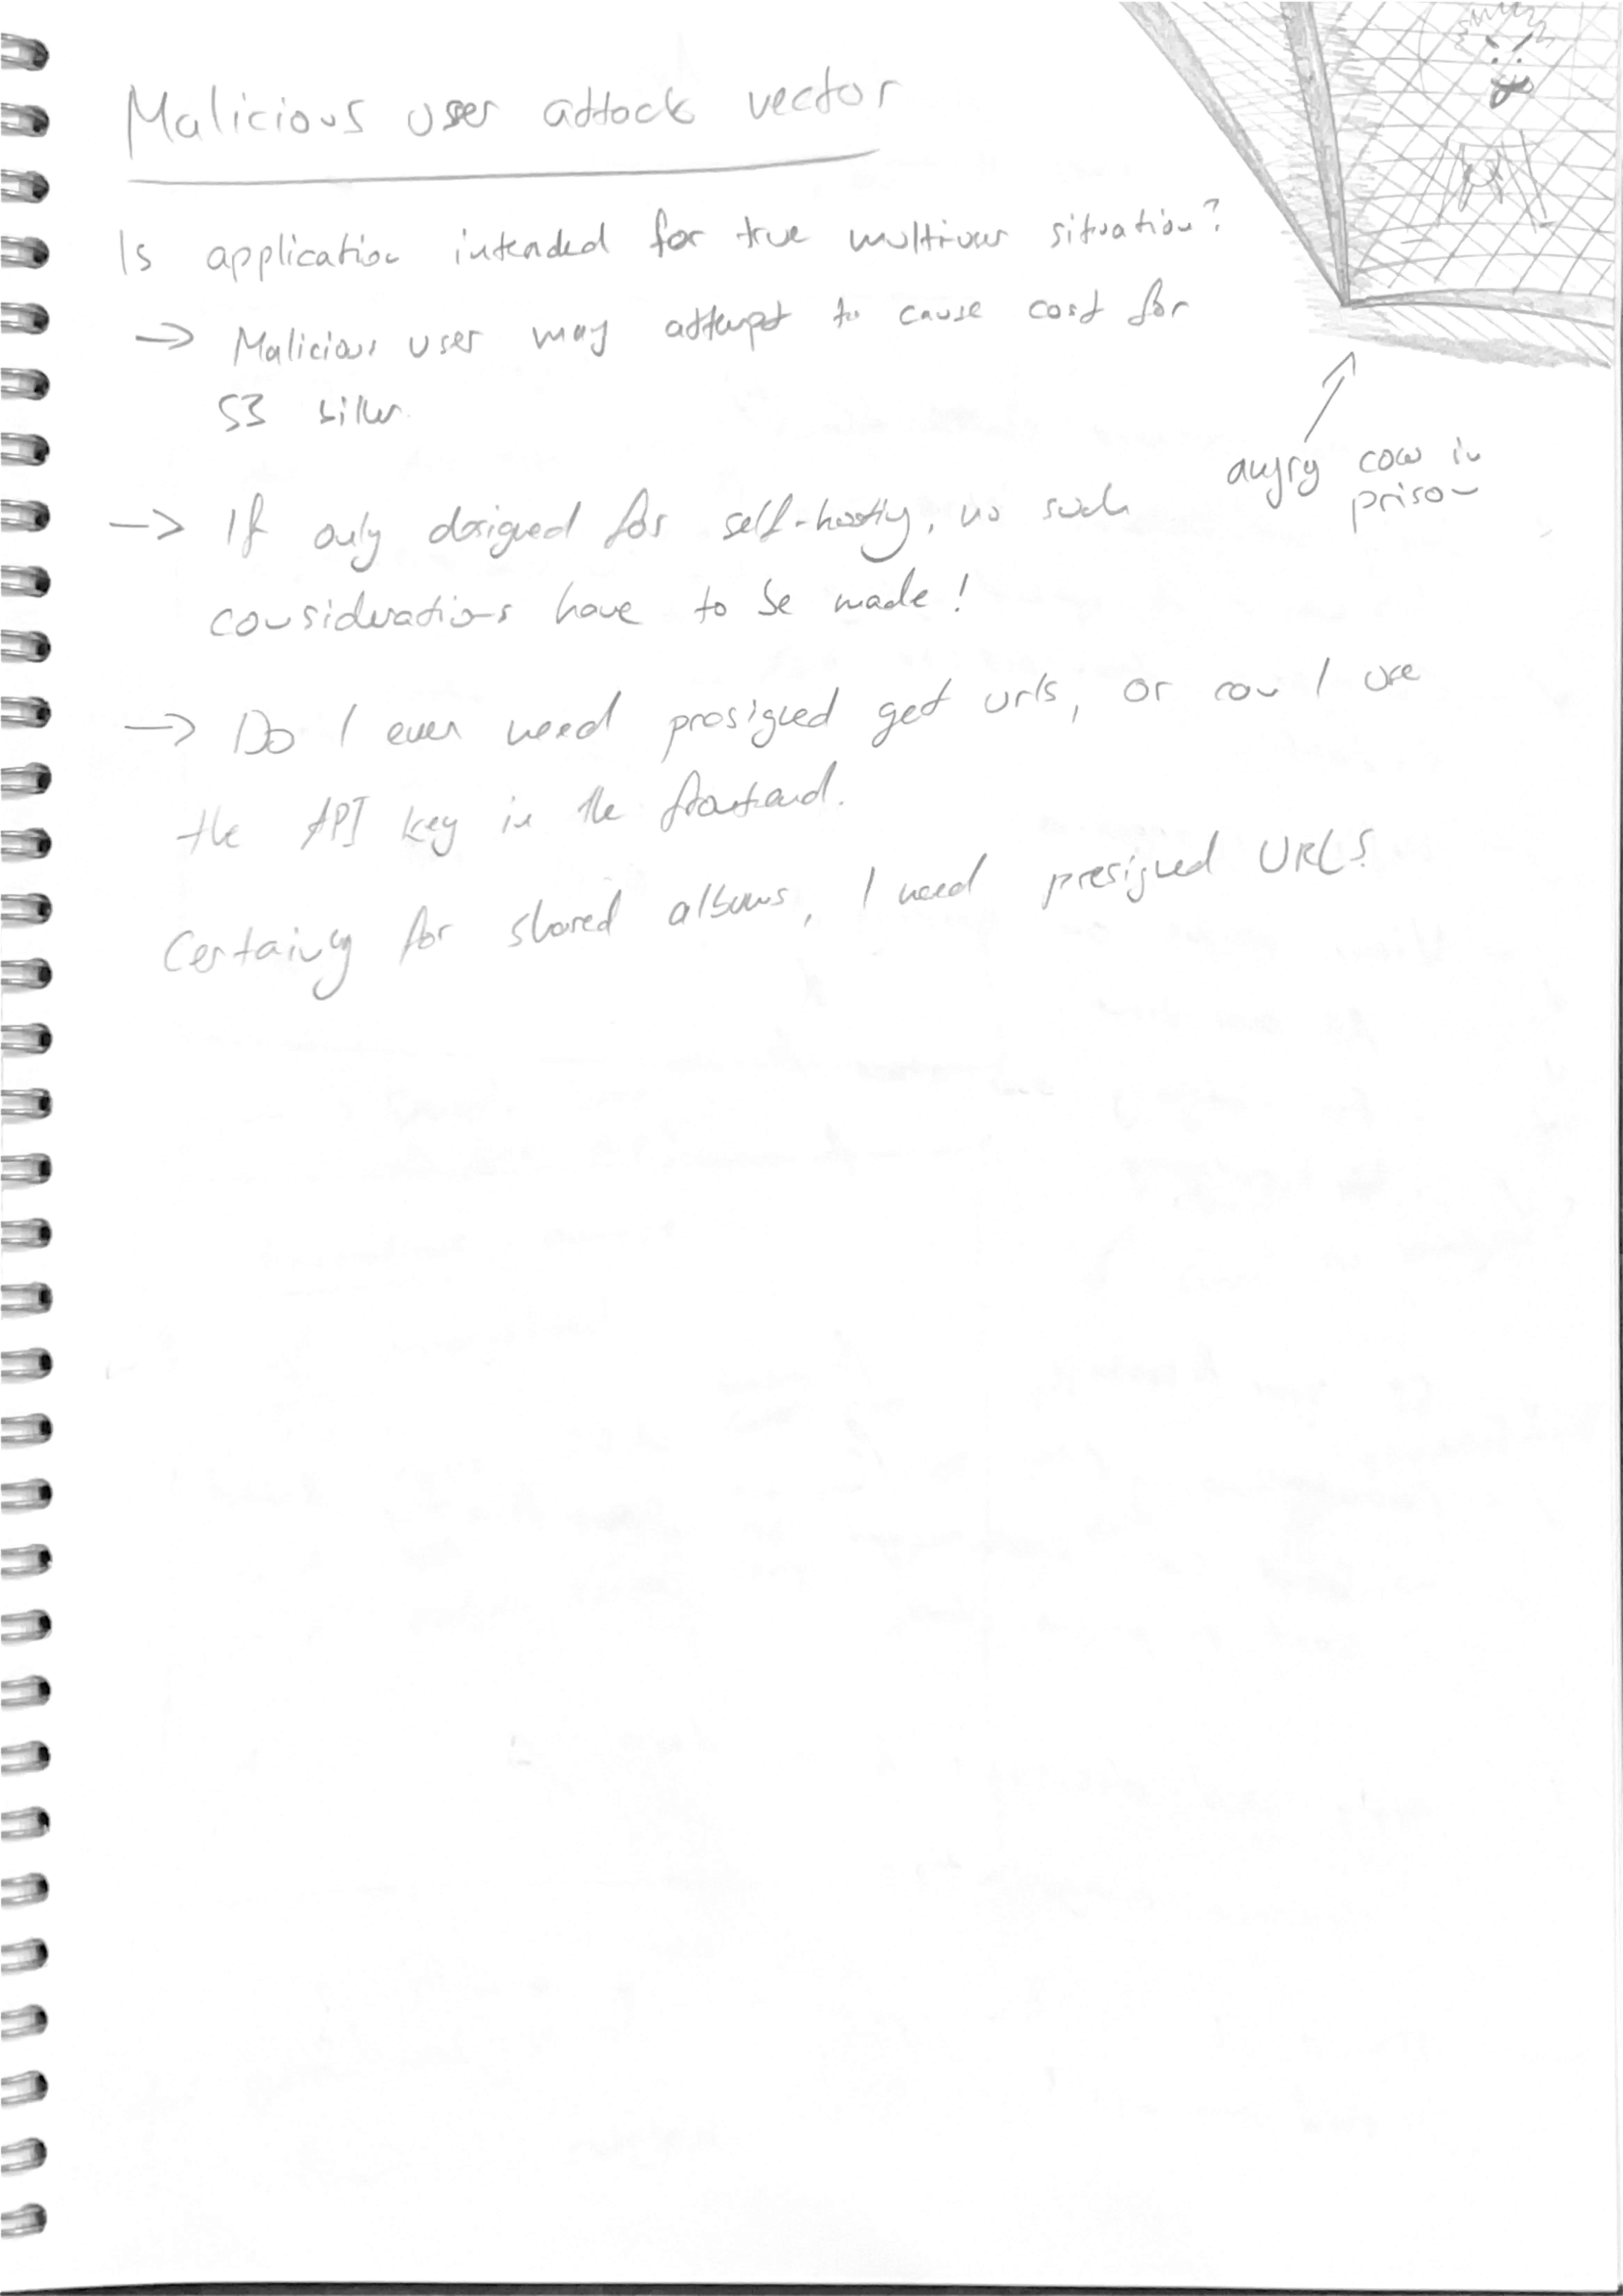 Malicious user attack vector
Is application intended for true multiuser situation?
→ Malicious user may attempt to cause cost for
S3 biller.
angry cow in
prison
→ If only designed for self-hosting, no such
considerations have to be made!
→ Do I even need presigned get urls, or can I use
the API key in the frontend.
Certainly for shared albums, I need presigned URLs.